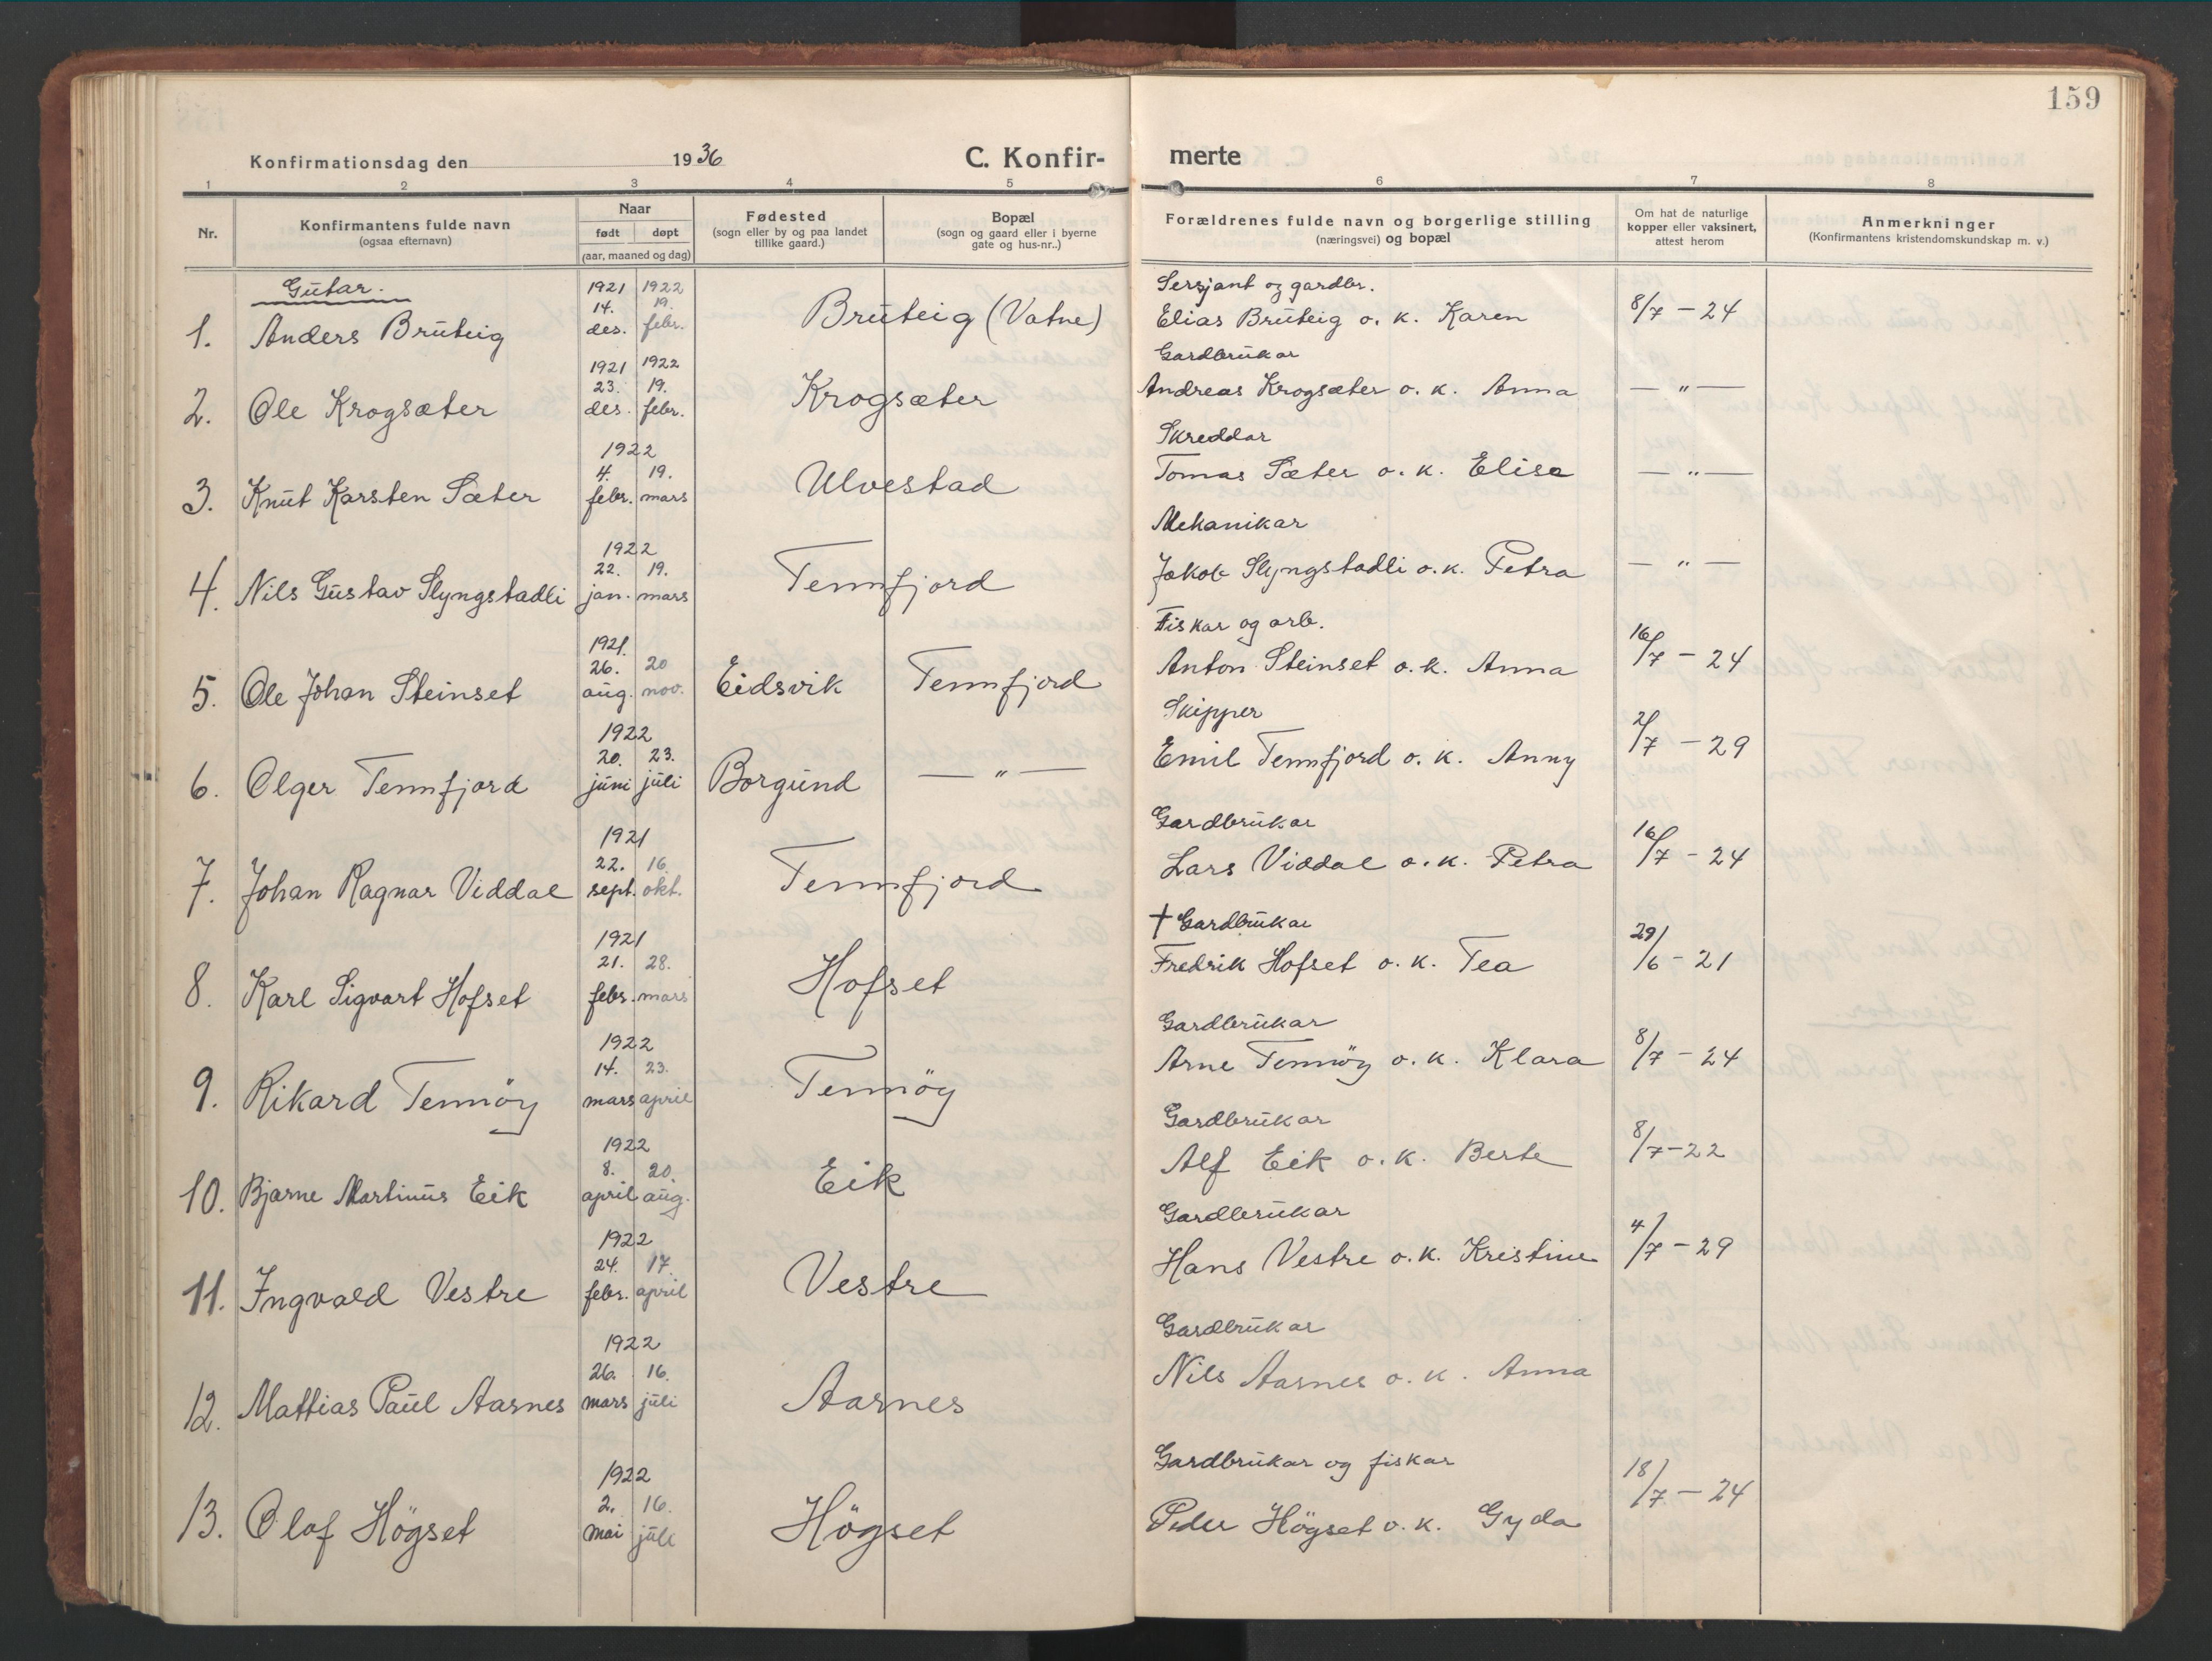 159
Konfirmationsdag den 1936 C. Konfir- merte
1 2 3 4 5 6 7 8
Nr.
Konfirmantens fulde navn
(ogsaa efternavn)
Naar
født døpt
(aar, maaned og dag)
Fødested
(sogn eller by og paa landet
tillike gaard.)
Bopæl
(sogn og gaard eller i byerne
gate og hus-nr..)
Forældrenes fulde navn og borgerlige stilling
(næringsvei) og bopæl
Om hat de naturlige
kopper eller vaksinert,
attest herom
Anmerkninger
(Konfirmantens kristendomskundskap m. v.)
Gutar.
1921 1922 Sersjant og gardbr.
14. 19.
1. Anders Bruteig des. febr. Bruteig (Vatne) Elias Bruteig o. k. Karen 8/7 - 24
1921 1922 Gardbrukar
23. 19.
2. Ole Krogsæter des. febr. Krogsæter Andreas Krogsæter o. k. Anna — " —
1922 Skreddar
4. 19.
3. Knut Karsten Sæter febr. mars Ulvestad Tomas Sæter o. k. Elise — " —
1922 Mekanikar
22. 19.
4. Nils Gustav Slyngstadli jan. mars Tennfjord Jakob Slyngstadli o. k. Petra — " —
1921. Fiskar og arb.
26. 20
5. Ole Johan Steinset aug. nov. Eidsvik Tennfjord Anton Steinset o. k. Anna 16/7 - 24
1922 Skipper
20. 23.
6. Olger Tennfjord juni juli Borgund — " — Emil Tennfjord o. k. Anny 2/7 - 29
1921 Gardbrukar
22. 16.
7. Johan Ragnar Viddal sept. okt. Tennfjord Lars Viddal o. k. Petra 16/7 - 24
1921 † Gardbrukar
21. 28.
8. Karl Sigvart Hofset febr. mars Hofset Fredrik Hofset o. k. Tea 29/6 - 21
1922 Gardbrukar
14. 23.
9. Rikard Tennöy mars april Tennöy Arne Tennöy o. k. Klara 8/7 - 24
1922 Gardbrukar
8. 20.
10. Bjarne Martinus Eik april aug. Eik Alf Eik o. k. Berte 8/7 - 22
1922 Gardbrukar
24. 17.
11. Ingvald Vestre febr. april Vestre Hans Vestre o. k. Kristine 4/7 - 29
1922 Gardbrukar
26. 16.
12. Mattias Paul Aarnes mars juli Aarnes Nils Aarnes o. k. Anna
1922 Gardbrukar og fiskar
2. 16.
13. Olaf Högset mai juli Högset Peder Högset o. k. Gyda 18/7 - 24